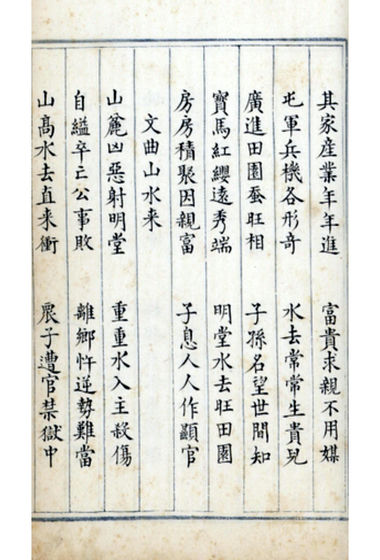 其家産業年年進 富貴求親不用媒
屯軍兵機各形奇 水去常常生貴兒
廣進田園蚕旺相 子孫名望世間知
寳馬紅纓遠秀端 明堂水去旺田園
房房積聚因親富 子息人人作顯官
文曲山水来
山麓凶惡射明堂 重重水入主殺傷
自縊卒亡公事敗 離鄉忤逆勢難當
山髙水去直来衝 衆子遭官禁獄中